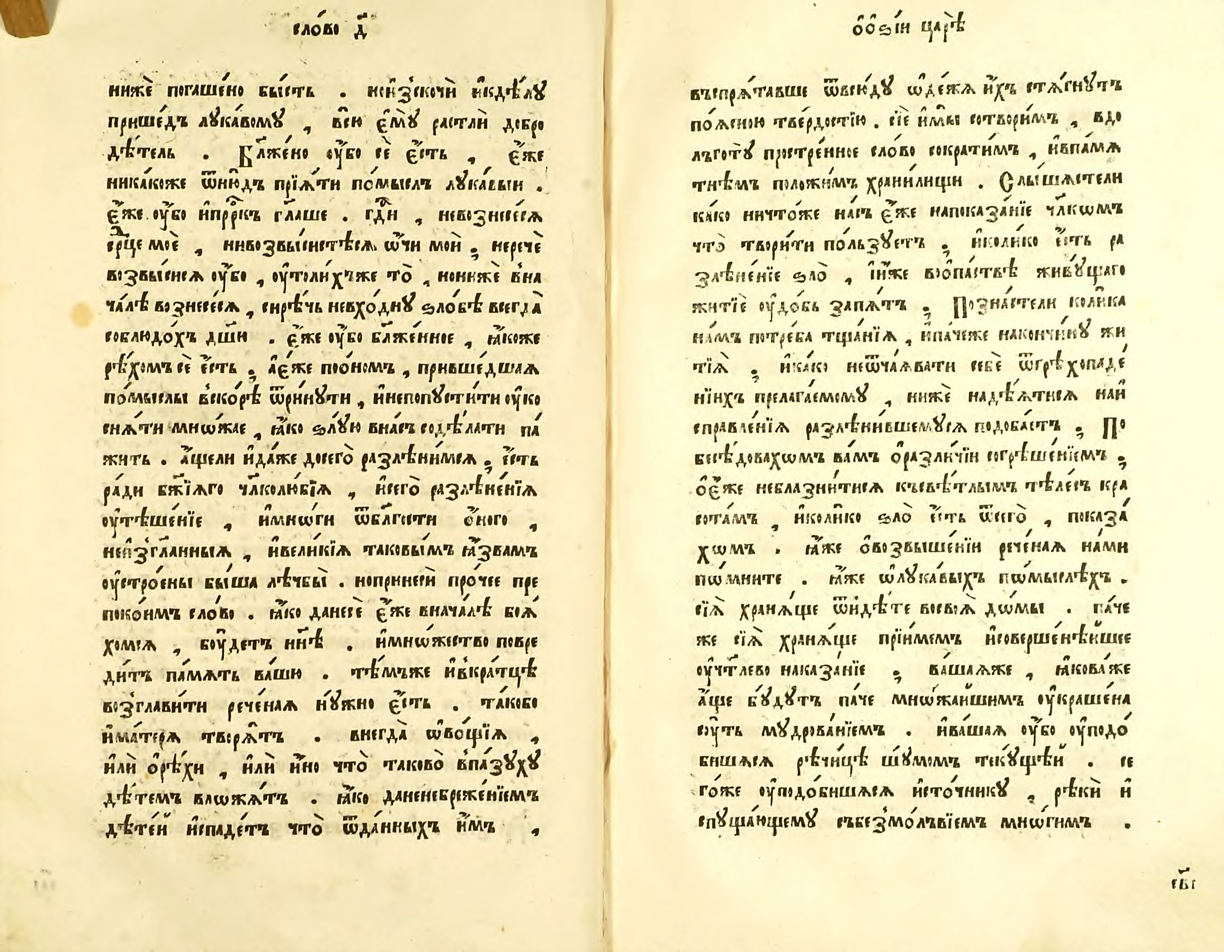 сло́во д҃
нижѐ погаше́но бы́сть . но и҆зскочѝ и҆ къдѣ́лꙋ
прише́дъ лꙋка́вомꙋ , всю̀ є҆мꙋ̀ растлѝ добро
дѣ́тель . Блаже́но ᲂу҆́бо сѐ є҆́сть , є҆́же
никакоже ѿню́дъ прїѧ́ти по́мыслъ лꙋка́выи .
є҆́же ᲂу҆́бо и҆прⷪ҇ркъ гл҃аше . гдⷭ҇и , невознесе́сѧ
срⷣце моѐ , нивозвыси́стѣсѧ ѻ҆́чи моѝ ; неречѐ
возвы́сисѧ ᲂу҆́бо , ᲂу҆толи́хъже то̀ , нонижѐ вна
ча́лѣ вознесе́сѧ , си́рѣчь невхо́днꙋ ѕло́бѣ всегда̀
соблюдо́хъ дш҃и . є҆́же ᲂу҆́бо блаже́нное , ꙗ҆́коже
рѣ́хомъ сѐ є҆́сть ; а҆є҆́же поѻ҆́номъ , прише́дшаѧ
по́мыслы вско́рѣ ѿри́нꙋти , и҆непопꙋсти́ти ᲂу҆ко
снѧ́ти мнѡ́жае , ꙗ҆́ко ѕлꙋ́ю вна́съ содѣ́лати па́
жить . а҆́щели и҆да́же досегѡ̀ разлѣни́мсѧ ; є҆́сть
ради бж҃їѧго чл҃колю́бїѧ , и҆сегѡ̀ разлѣне́нїѧ
ᲂу҆тѣше́нїе , и҆мнѡ́ги ѿбл҃гости ѻ҆́ного ,
неи҆згл҃а́нныѧ , и҆вели́кїѧ таковы́мъ ꙗ҆́звамъ
ᲂу҆стро́ены бы́ша лѣчбы̀ . нопринесѝ про́чее пре
поко́имъ сло́во . ꙗ҆́ко данесѐ є҆́же внача́лѣ боѧ́
хомсѧ , бꙋ́детъ нн҃ѣ . и҆мно́жество повре
ди́тъ па́мѧть ва́шю . тѣ́мъже и҆вкра́тцѣ
возгла́вити рече́наѧ нꙋ́жно є҆́сть . та́кобо
и҆ма́терѧ творѧ́тъ . внегда̀ ѻ҆во́щїѧ ,
и҆лѝ ѻ҆рѣ́хи , и҆лѝ и҆́но что̀ таково̀ впа́зꙋхꙋ
дѣ́темъ вло́жатъ . ꙗ҆́ко даненебреже́нїемъ
дѣте́й и҆спаде́тъ что̀ ѿда́нныхъ и҆̀мъ ,
ѻ҆ ѻ҆ѕі́и царѣ̀
въспрѧ́тавше ѿвсю́дꙋ ѻ҆де́жѧ и҆́хъ стѧ́гнꙋтъ
поѧсною тве́рдостїю . сїѐ и҆мы̀ сотвори́мъ , вдо
лъготꙋ̀ простре́нное сло́во сократи́мъ , и҆впа́мѧ
тнѣ́мъ положи́мъ храни́лищи . Слы́шастели
ка́ко ничто́же на́съ є҆́же напоказа́нїе чл҃кѡмъ
что̀ твори́ти по́льзꙋетъ ; и҆коли́ко є҆́сть ра
злѣне́нїе ѕло̀ , і҆́иже воѻ҆па́ствѣ живꙋ́щаго
житїѐ ᲂу҆до́бь запѧ́тъ ; Позна́стели коли́ка
на́мъ потре́ба тща́нїѧ , и҆па́чеже накончи́нꙋ жи
тїѧ̀ ; и҆ка́ко неѿчаѧва́ти себѐ ѿгрѣхопаде́
нїихъ прелага́емомꙋ , нижѐ надѣ́ѧтисѧ наи҆
справле́нїѧ разлѣни́вшемꙋсѧ подоба́етъ ; По
бесѣ́довахѡмъ ва́мъ ѻ҆разли́чїи согрѣше́нїемъ ;
ѻ҆є҆́же неблазни́тисѧ къ свѣ́тлымъ тѣле́съ кра
сота́мъ , и҆коли́ко ѕло̀ є҆́сть ѿсегѡ̀ , показа́
хѡмъ . ꙗ҆́же ѻ҆возвыше́нїи рече́наѧ на́ми
по́мните . ꙗ҆́же ѻ҆лꙋка́выхъ по́мыслѣхъ .
сїѧ̀ хранѧ́ще ѿидѣ́те восвоѧ̀ до́мы . па́че
же сїѧ̀ хранѧ́ще прїи́мемъ и҆соверше́нѣйшее
ᲂу҆чт҃лево наказа́нїе ; ва́шаѧже , ꙗ҆кова́же
а҆́ще бꙋ́дꙋтъ па́че мно́жайшимъ ᲂу҆краше́на
сꙋ́ть мꙋдрова́нїемъ . и҆ва́шаѧ ᲂу҆́бо ᲂу҆подо́
бишасѧ рѣ́чицѣ шꙋ́момъ текꙋ́щѣи . се
го́же ᲂу҆подо́бишасѧ и҆сто́чникꙋ , рѣ́ки и҆
спꙋща́ющемꙋ събезмо́лъвїемъ мно́гимъ .